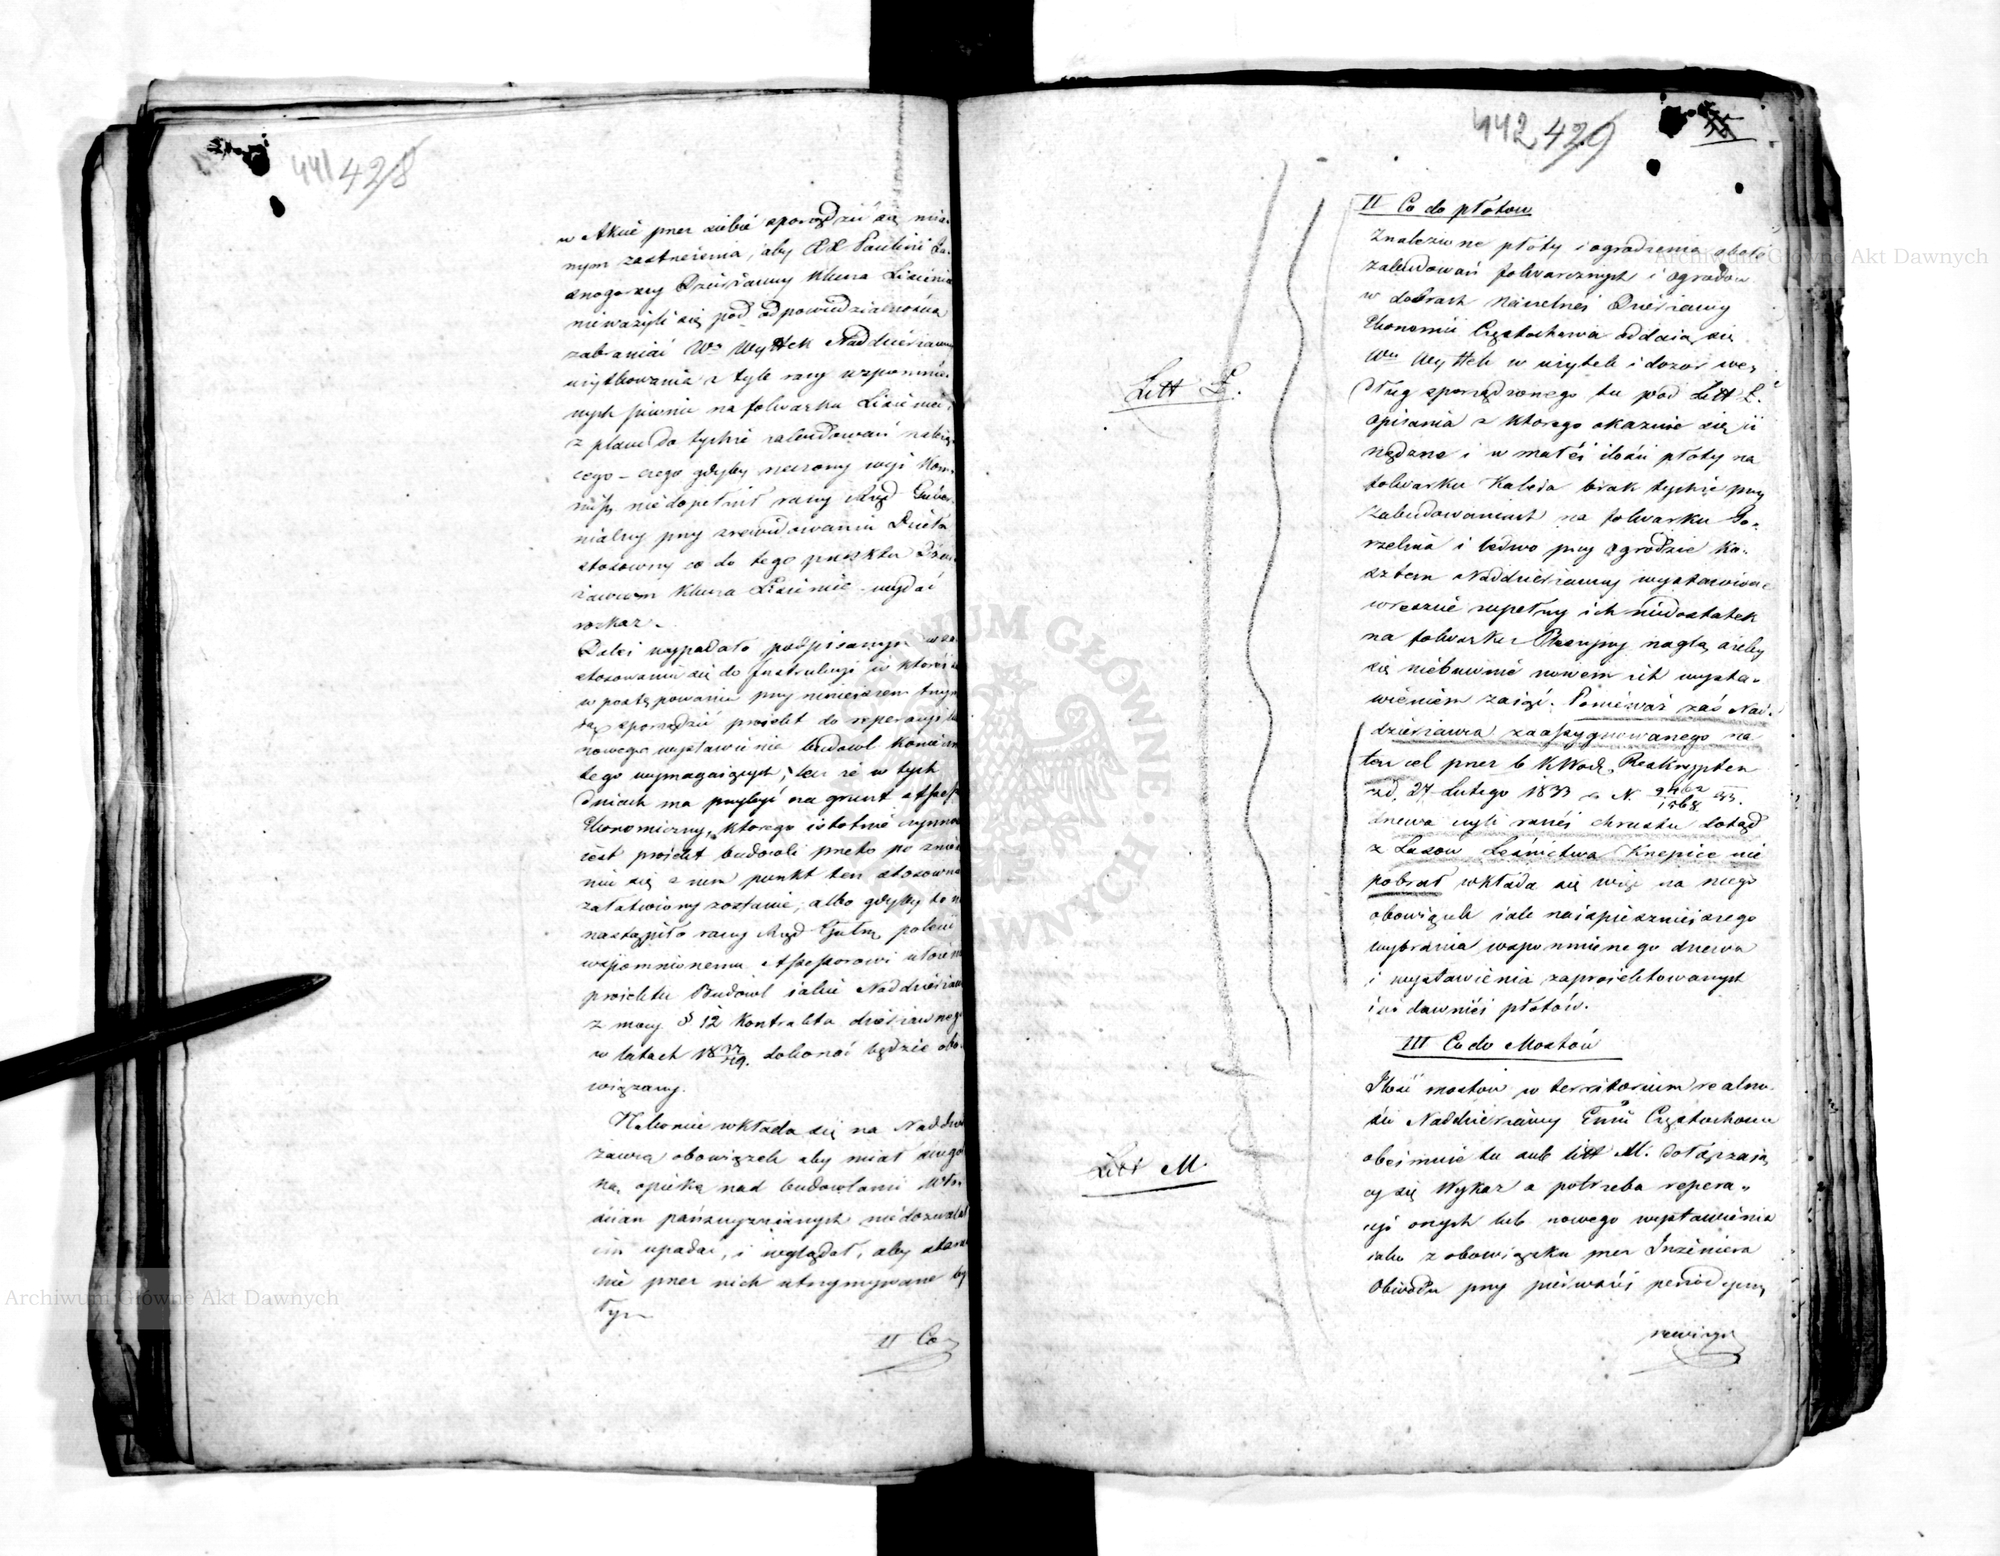 441 428
w Akcie przez siebie sporządzić się mia-
nym zastrzeżenia, aby XX Paulini
Dzierżawcy Klucza Lisiniec
nieważyli się pod odpowiedzialnością
zabraniać Wu Wyttek Naddzierżawcy
użytkowania z tyle razy wspomnio-
nych piwnic na folwarku Lisiniec
z placu do tychże zabudowań należą-
cego – czego gdyby rzeczony
niedopełnił raczy Rząd Guber-
nialny przy zrewidowaniu Dzieła
stosowny co do tego punktu Dzier-
żawcom Klucza Lisiniec wydać
rozkaz.
Dalej wypadało podpisanym w za-
stosowaniu się do Instrukcyi
w postępowaniu przy niniejszem
sporządzić projekt do reperacyi
nowego wystawienia budowl koniecznie
tego wymagających, lecz że w tych
dniach ma przybyć na grunt Assessor
Ekonomiczny, którego istotną czynnością
jest projekt budowli przeto po zniesie-
niu się z nim punkt ten stosownie
załatwiony zostanie, albo gdyby to nie
nastąpiło raczy Rząd Gubny polecić
wspomnionemu Assessorowi
projektu Budowl jakie Naddzierżawca
z mocy § 12 Kontraktu dzierżawnego
w latach 18 dokonać będzie obo-
wiązany.
Nakoniec wkłada się na Naddzier-
żawcę obowiązek aby miał
opiekę nad budowlami Wło-
ścian pańszczyznianych niedozwalał
im upadać, i wglądał, aby
nie przez nich utrzymywane by-
ły.
II Co
442 429
II Co do płotów
Znalezione płoty i ogrodzenia około
zabudowań folwarcznych i ogrodów
w dobrach Naczelnej Dzierżawy
Ekonomii Częstochowa oddają się
Wu Wyttek w użytek i dozór we-
Litt L.
dług sporządzonego tu pod Litt L.
opisania z którego okazuje się iż
nędzne i w małej ilości płoty na
folwarku Kaleja brak tychże przy
zabudowaniach na folwarku Go-
rzelnia i ledwo przy ogrodzie ko-
sztem Naddzierżawcy wystawione
wreszcie zupełny ich niedostatek
na folwarku naglą ażeby
się niebawnie nowem ich wysta-
wieniem zająć. Ponieważ zaś Nad-
dzierżawca zaassygnowanego na
ten cel przez b. K. Wodz. Reskryptem
z d. 27 Lutego 1833 N. 9462/1568
drzewa czyli raczej chrustu dotąd
z Lasów Leśnictwa Krzepice nie
pobrał wkłada się więc na niego
obowiązek jak najspieszniejszego
wybrania wspomnionego drzewa
i wystawienia zaprojektowanych
już dawniej płotów.
III Co do Mostów
Ilość mostów w territorium realno-
ści Naddzierżawy Enii Częstochowa
Litt M.
obejmuje tu sub litt M. dołączają-
cy się Wykaz a potrzeba repera-
cyi onych lub nowego wystawienia
jako z obowiązku przez Inżeniera
Obwodu przy pierwszej peryodycznej
rewizyi
Archiwum Główne Akt Dawnych